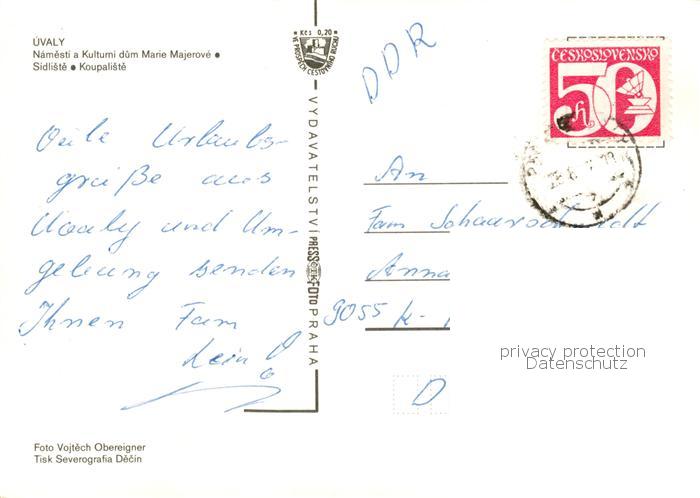 ÚVALY
Náměstí a Kulturní dům Marie Majerové ●
Sídliště ● Koupaliště
Kčs 0,20
VE PROSPĚCH CESTOVNÍHO RUCHU
DDR
ČESKOSLOVENSKO
50
h
Urlaubs-
grüße aus
Uvaly und Um-
gebung senden
Ihnen Fam
VYDAVATELSTVÍ PRESSFOTO PRAHA
An
Fam
Anna
9055 K-
D
privacy protection
Datenschutz
Foto Vojtěch Obereigner
Tisk Severografia Děčín